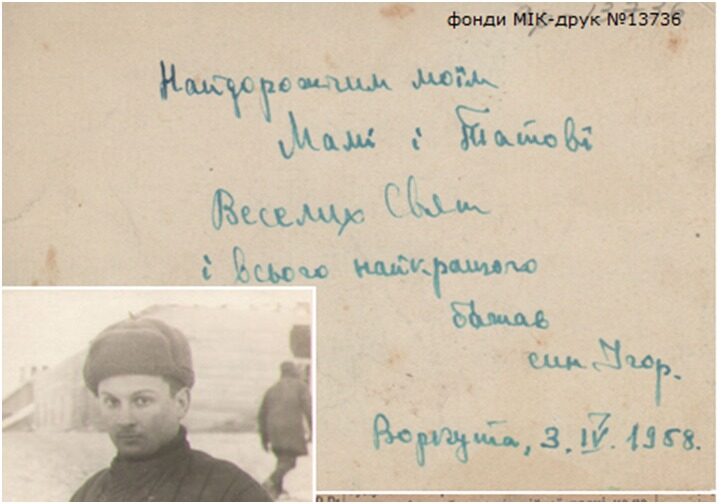 фонди МІК-друк №13736
Найдорожчим моїм
Мамі і Татові
Веселих Свят
і всього найкращого
бажає
син Ігор.
Воркута, 3. IV. 1958.